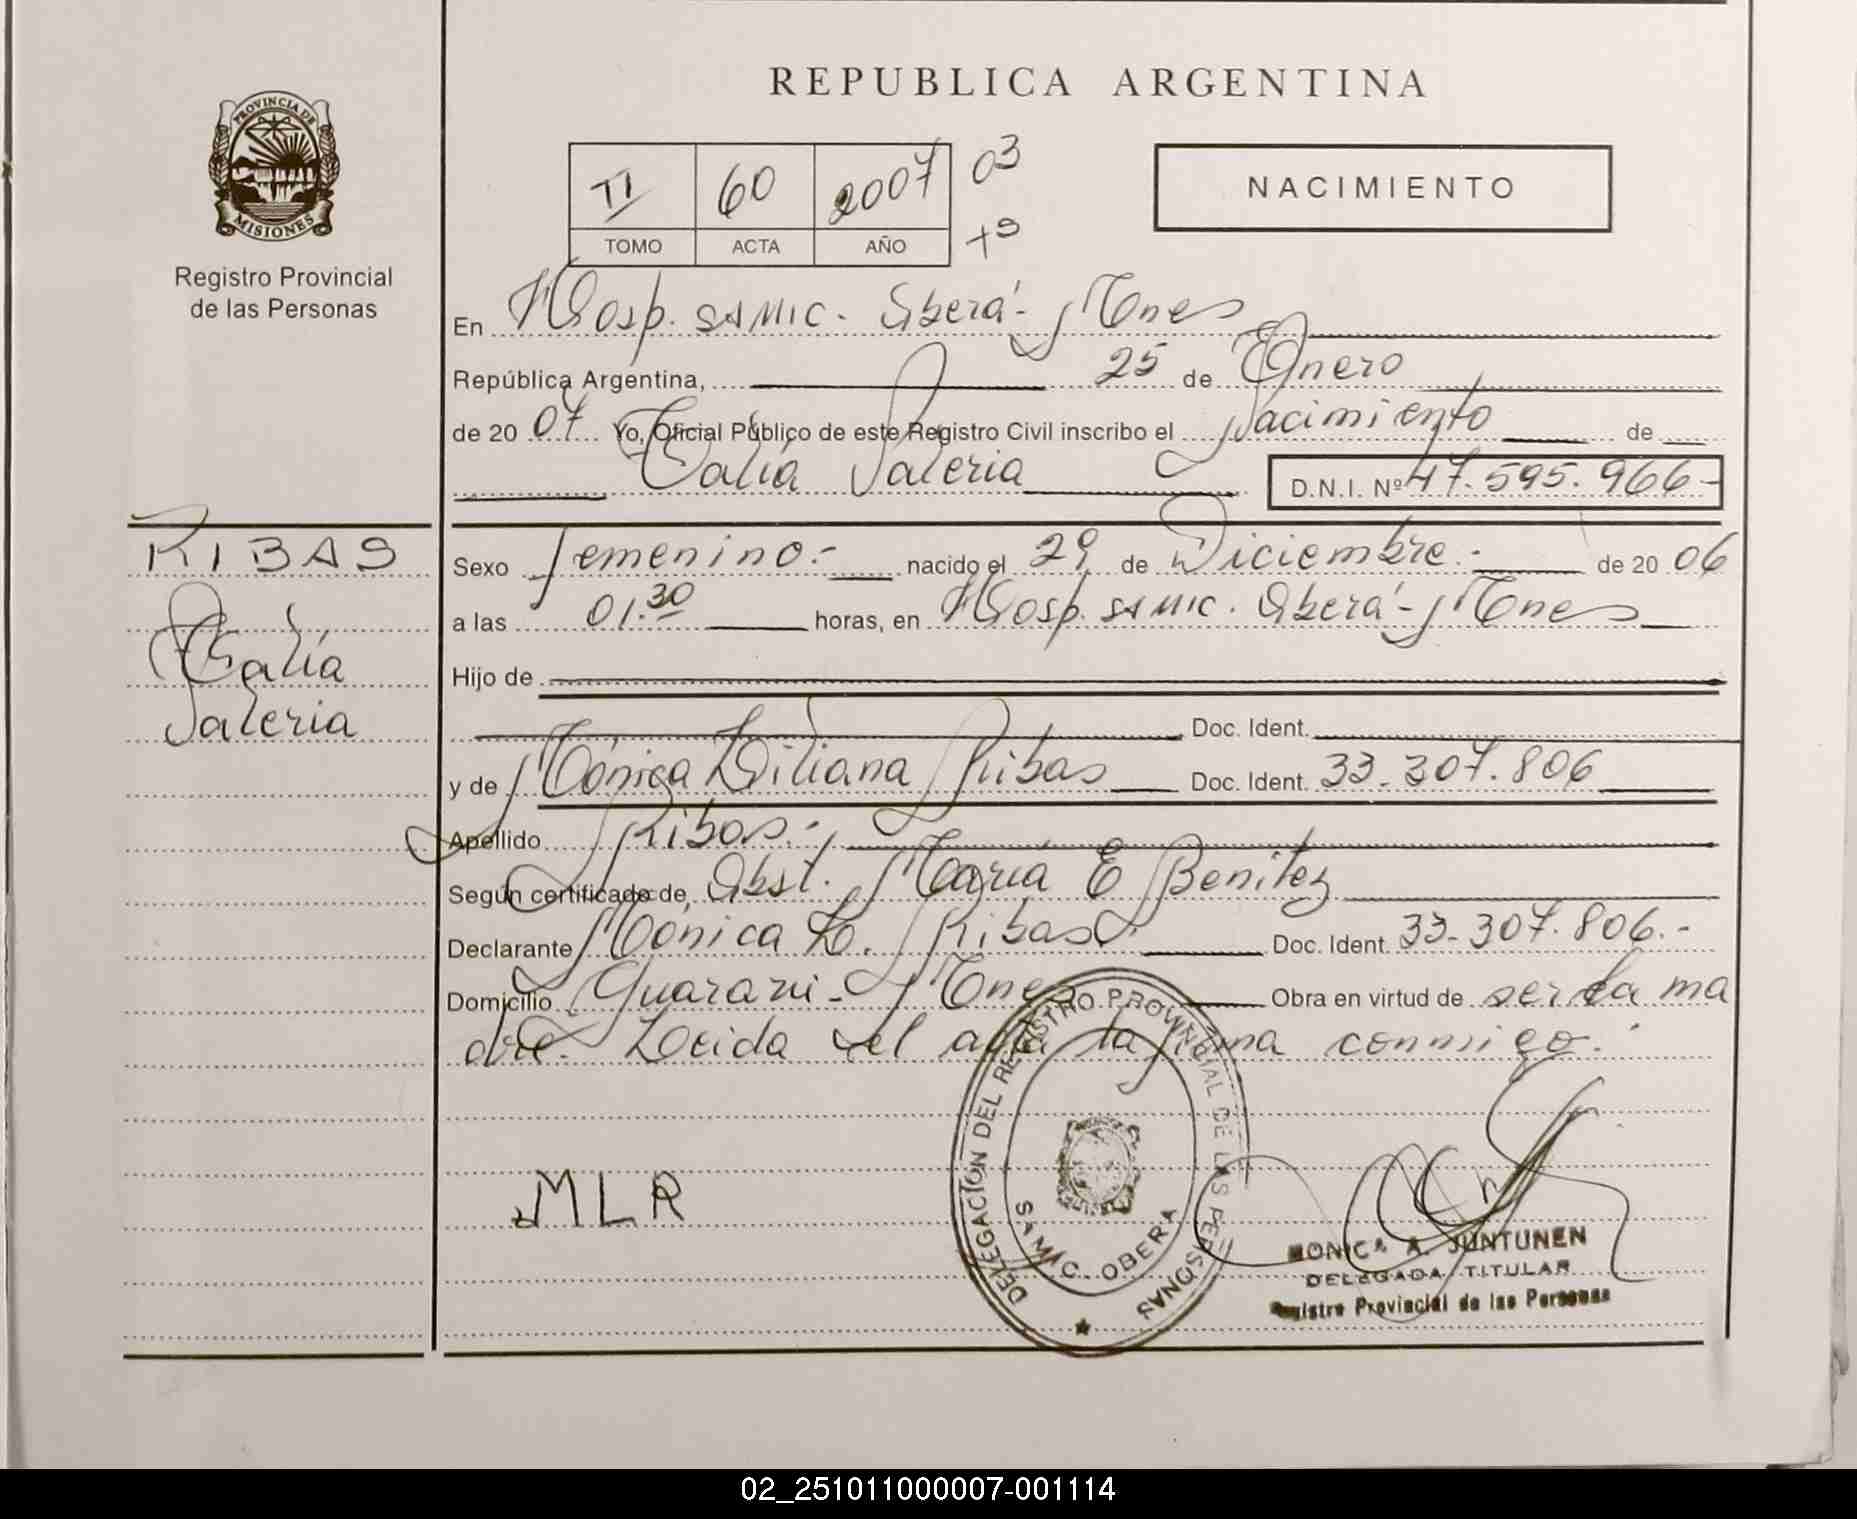 REPUBLICA ARGENTINA
PROVINCIA DE MISIONES
Registro Provincial
de las Personas
TI 60 2007 03
TOMO ACTA AÑO
NACIMIENTO
En Hosp. SAMIC. Oberá - Mnes
República Argentina, 25 de Enero
de 2007 Yo, Oficial Público de este Registro Civil inscribo el Nacimiento de
Talía Valeria D.N.I. Nº 47.595.966-
RIBAS
Talía
Valeria
Sexo femenino.- nacido el 29 de Diciembre.- de 2006
a las 01.30 horas, en Hosp. SAMIC. Oberá - Mnes
Hijo de
Doc. Ident.
y de Mónica Liliana Ribas Doc. Ident. 33.307.806
Apellido Ribas.-
Según certificado de Obst. María E Benitez
Declarante Mónica L. Ribas Doc. Ident. 33.307.806.-
Domicilio Guaraní - Mnes Obra en virtud de ser la ma
dre. Leida el acta la firma conmigo.-
MLR
DELEGACIÓN DEL REGISTRO PROVINCIAL DE LAS PERSONAS
SAMIC. OBERA
MONICA A. JUNTUNEN
DELEGADA TITULAR
Registro Provincial de las Personas
02_251011000007-001114